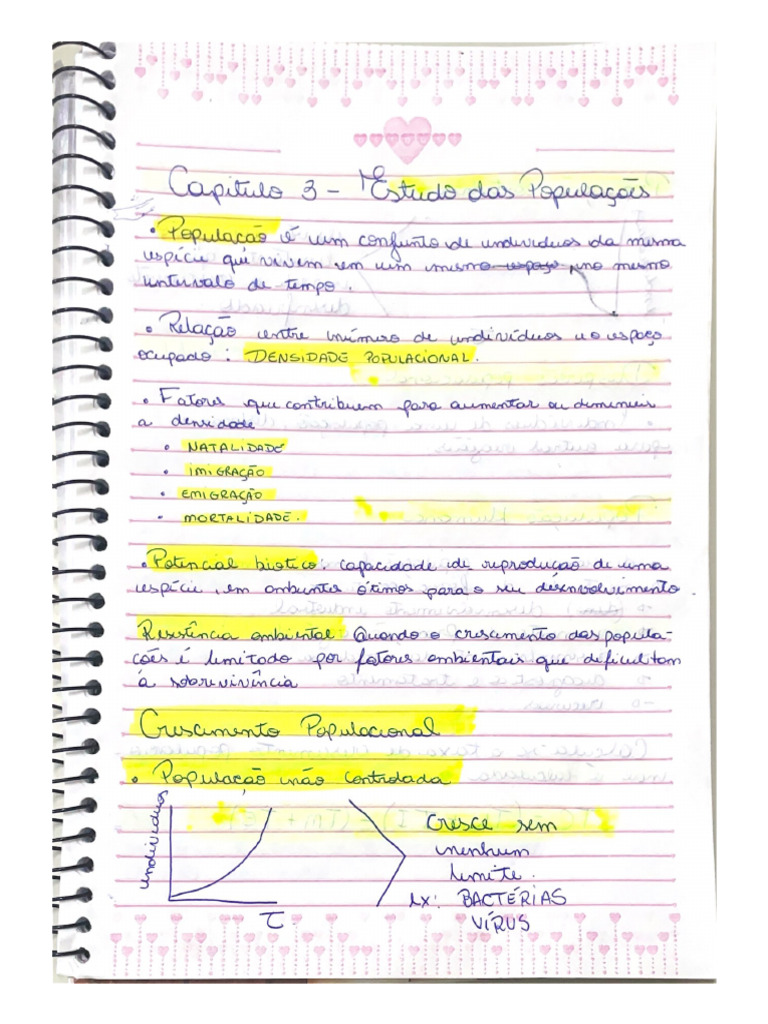 Capitulo 3 - Estudo das Populações
• População é um conjunto de individuos da mesma
espécie que vivem em um mesmo espaço, no mesmo
intervalo de tempo.
• Relação entre número de indivíduos e o espaço
ocupado: DENSIDADE POPULACIONAL.
• Fatores que contribuem para aumentar ou diminuir
a densidade
• NATALIDADE
• IMIGRAÇÃO
• EMIGRAÇÃO
• MORTALIDADE.
• Potencial biotico: capacidade de reprodução de uma
espécie, em ambientes ótimos para o seu desenvolvimento
Resistência ambiental: Quando o crescimento das popula-
ções é limitado por fatores ambientais que dificultam
à sobrevivência
Crescimento Populacional
• População não controlada
individuos
Cresce sem
nenhum
limite.
ex: BACTÉRIAS
VÍRUS
T